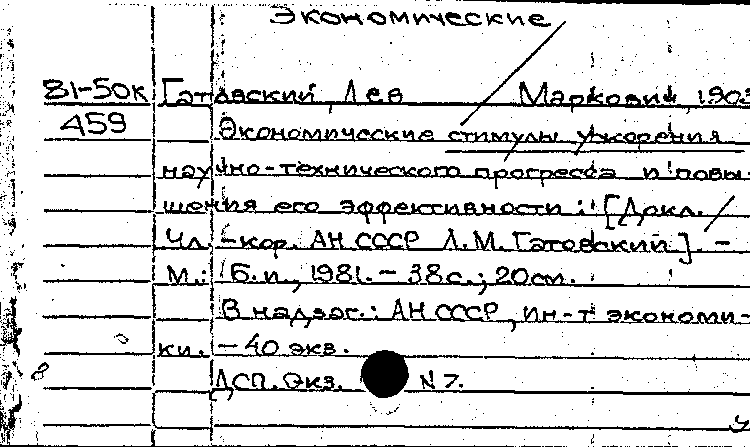 Экономические
81-50к Гатовский, Лев Маркович, 1903
459 Экономические стимулы ускорения
научно-технического прогресса и повы-
шения его эффективности : [Докл. /
Чл.-кор. АН СССР Л.М. Гатовский]. -
М.: Б.и., 1981. - 38с.; 20см.
В надзаг.: АН СССР, Ин-т экономи-
ки. - 40 экз.
8 ДСП. Экз. N 7.